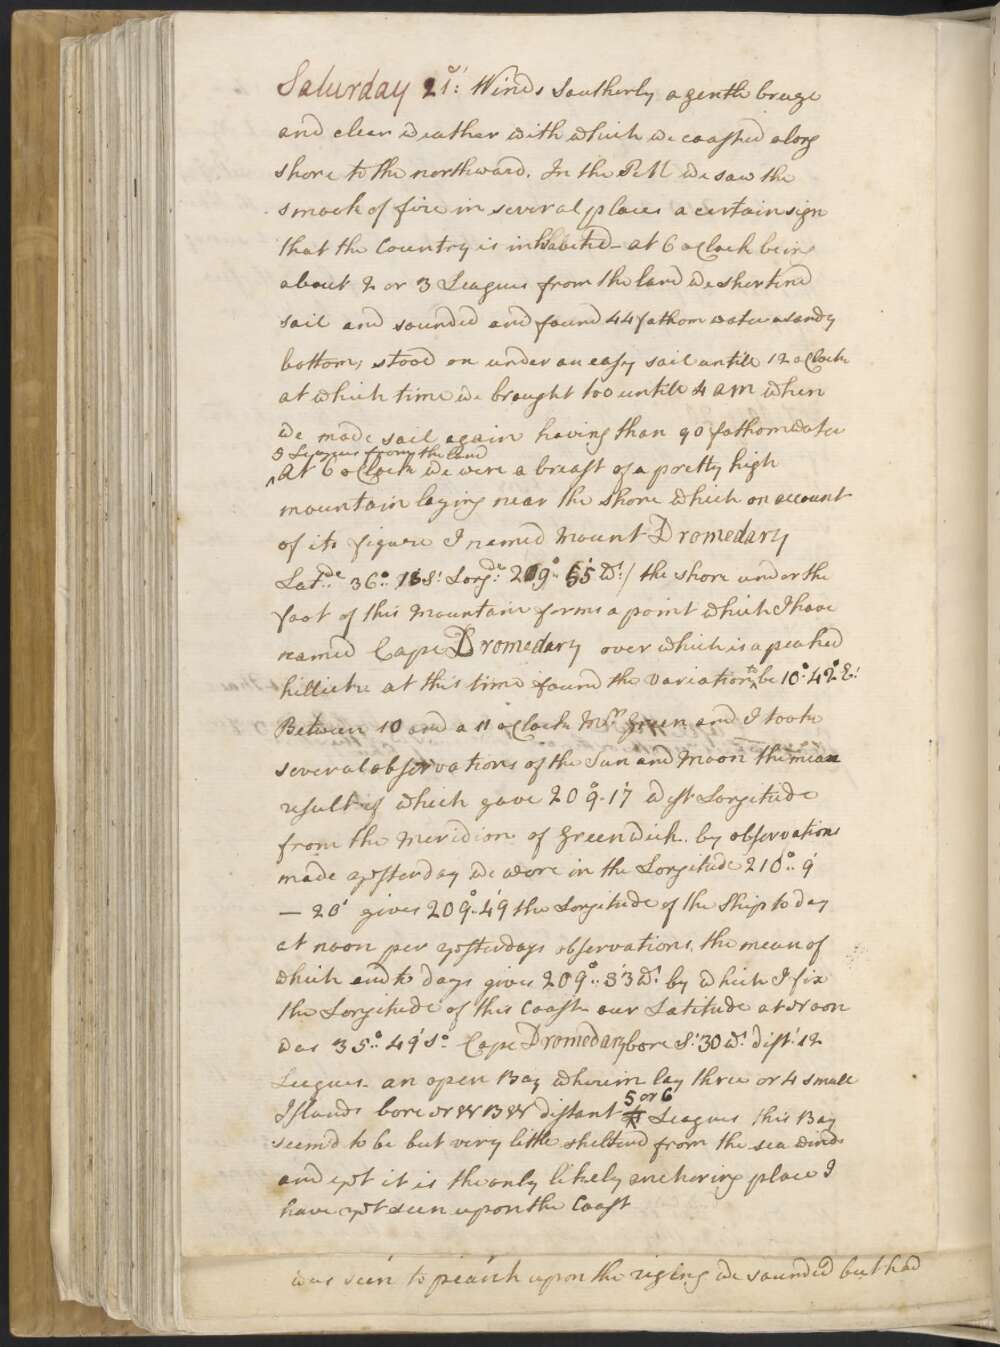 Saturday 21st: Winds Southerly a gentle breeze
and clear weather with which we coasted along
shore to the northward. In the PM we saw the
smook of fire in several places a certain sign
that the Country is inhabited - at 6 oClock being
about 2 or 3 Leagues from the land we shortend
sail and sounded and found 44 fathom water a sandy
bottom, stood on under an easy sail untill 12 oClock
at which time we brought too untill 4 AM when
we made sail again having than 90 fathom water
5 Leagues from the land
^ at 6 oClock we were a breast of a pretty high
mountain laying near the shore which on account
of its figure I named Mount Dromedary
Latde 36°..18 S' Longde: 209°.. 55' W'/ the shore under the
foot of this Mountain forms a point which I have
named Cape Dromedary over which is a peaked
hillick at this time found the Variation ^to be 10°.42' E'
Between 10 and a 11 oClock Mr Green and I took
several observations of the Sun and Moon the mean
result of which gave 209°.17' West Longitude
from the Meridion of Greenwich. by observations
made yesterday we were in the Longitude 210°..9'
— 20' gives 209°.49' the Longitude of the Ship to day
at noon per yesterdays observations, the mean of
which and to days gives 209°..33' W' by which I fix
the Longitude of this Coast - our Latitude at Noon
was 35°..49' S° Cape Dromedary bore S' 30 W' dist' 12
Leagues - an open Bay wherein lay three or 4 small
Islands bore NWBW distant 5 or 6 Leagues this Bay
seem'd to be but very little shelterd from the sea winds
and yet it is the only likely anchoring place I
have yet seen upon the Coast
was seen to peach upon the riging we sounded but had